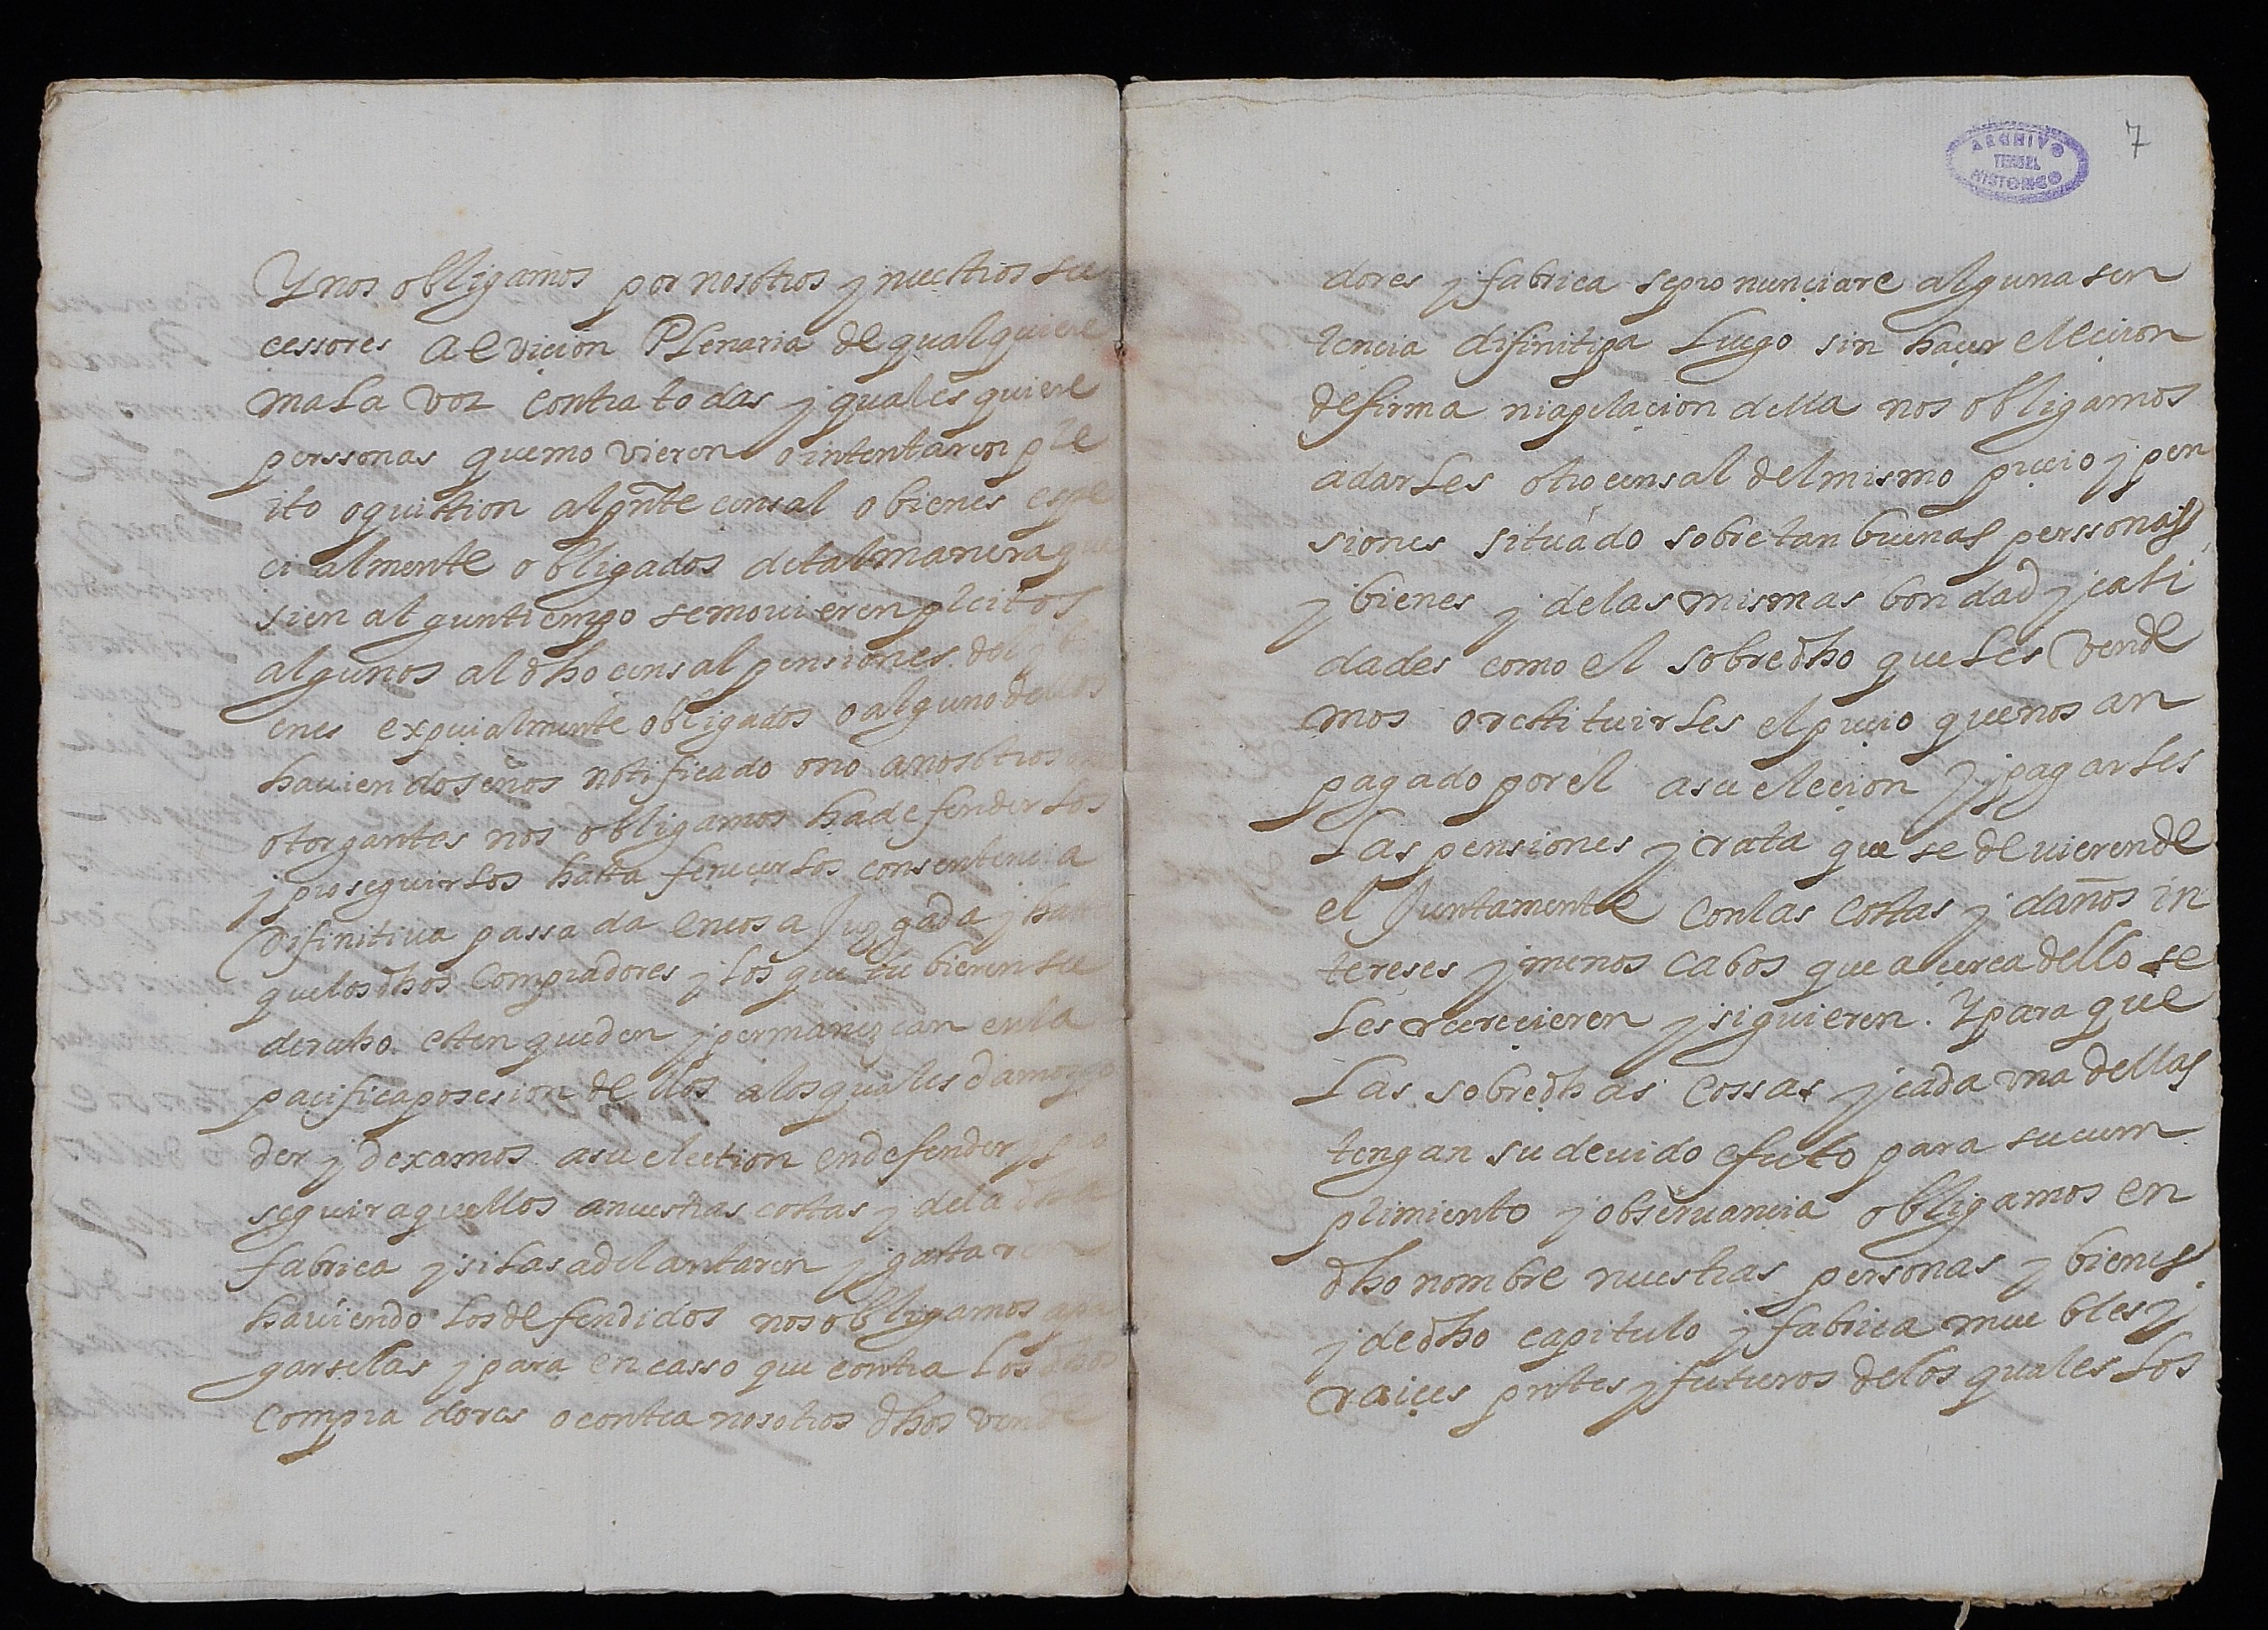 Y nos obligamos por nosotros y nuestros su
cessores a eviçion Plenaria de qualquiere
mala voz contra todas y qualesquiere
perssonas que movieren o intentaren ple
ito o quistion al pnte censal o bienes espe
cialmente obligados de tal manera que
si en algun tiempo se movieren pleitos
algunos al dho censal pensiones del y bi
enes expecialmente obligados o alguno dellos
haviendosenos notificado o no a nosotros
otorgantes nos obligamos ha defenderlos
y proseguirlos hasta feneçerlos con sentencia
difinitiva passada en cosa Juzgada y hasta
que los dhos Compradores y los que tuvieren su
derecho esten queden y permanezcan en la
pacifica posesion dellos a los quales damos po
der y dexamos a su election en defender y pro
seguir aquellos a nuestras costas y de la dha
fabrica y si las adelantaren y gastaren
haviendolos defendidos nos obligamos a pa
garselas y para en casso que contra los dhos
Compradores o contra nosotros dhos vende
ARCHIVO
TERUEL
HISTORICO
7
dores y fabrica se pronunçiare alguna sen
tencia difinitiva Luego sin haçer eleçion
de firma ni apelaçion della nos obligamos
a darles otro censal del mismo preçio y pen
siones situado sobre tan buenas perssonas
y bienes y de las mismas bondad y cali
dades como el sobredho que les vende
mos o restituirles el preçio que nos an
pagado por el a su eleçion y pagarles
Las pensiones y rata que se devieren de
el Juntamente con las costas y daños in
tereses y menos cabos que açerca dello se
les recreçieren y siguieren. Y para que
Las sobredhas cossas y cada una dellas
tengan su devido efecto para su cum
plimiento y observançia obligamos en
dho nombre nuestras personas y bienes
y de dho capitulo y fabrica muebles y
raiçes pntes y futuros de los quales los